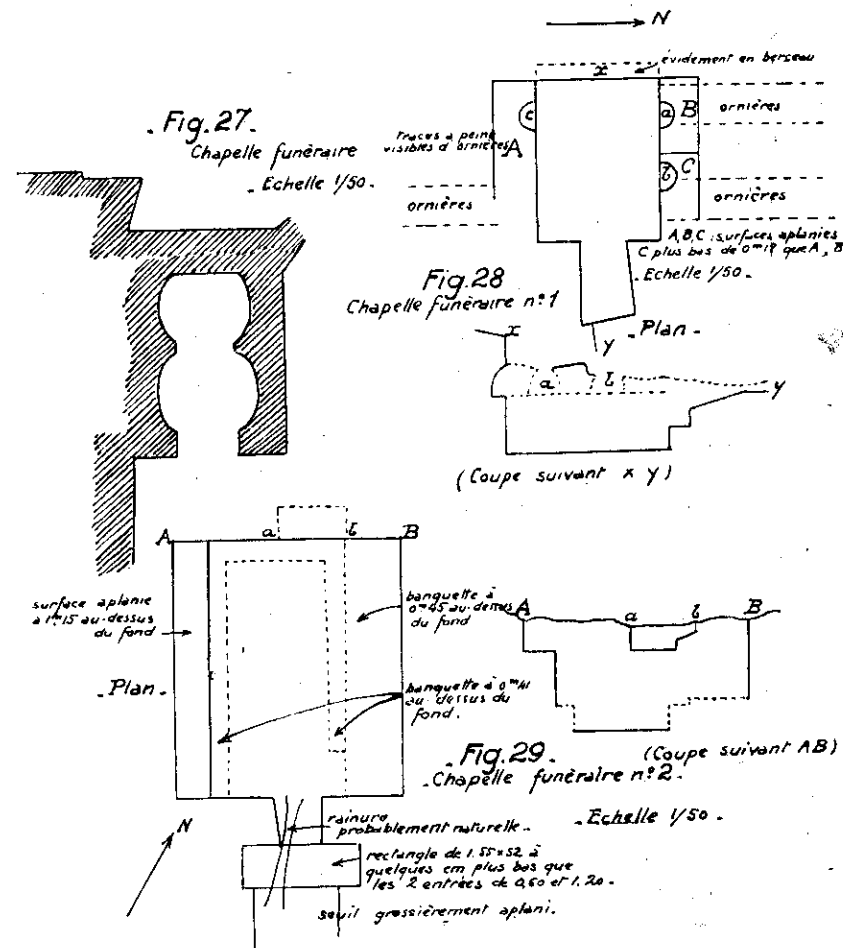 N
x
évidement en berseau
. Fig. 27 .
Chapelle funéraire
. Echelle 1/50 .
Traces à peine
visibles d'ornières
A
c
a
B
ornières
C
b
ornières
ornières
A, B, C : surfaces aplanies
C plus bas de 0m18 que A, B
. Echelle 1/50 .
Fig. 28
Chapelle funéraire n° 1
. Plan .
y
x
a
b
y
(Coupe suivant x y)
A
a
b
B
surface aplanie
à 1m15 au-dessus
du fond
banquette à
0m45 au-dessus
du fond
. Plan .
banquette à 0m41
au-dessus du
fond .
A
a
b
B
. Fig. 29 .
(Coupe suivant AB)
. Chapelle funéraire n° 2 .
. Echelle 1/50 .
N
rainure
probablement naturelle .
rectangle de 1.55 x 52 à
quelques cm plus bas que
les 2 entrées de 0,60 et 1.20 .
seuil grossièrement aplani .